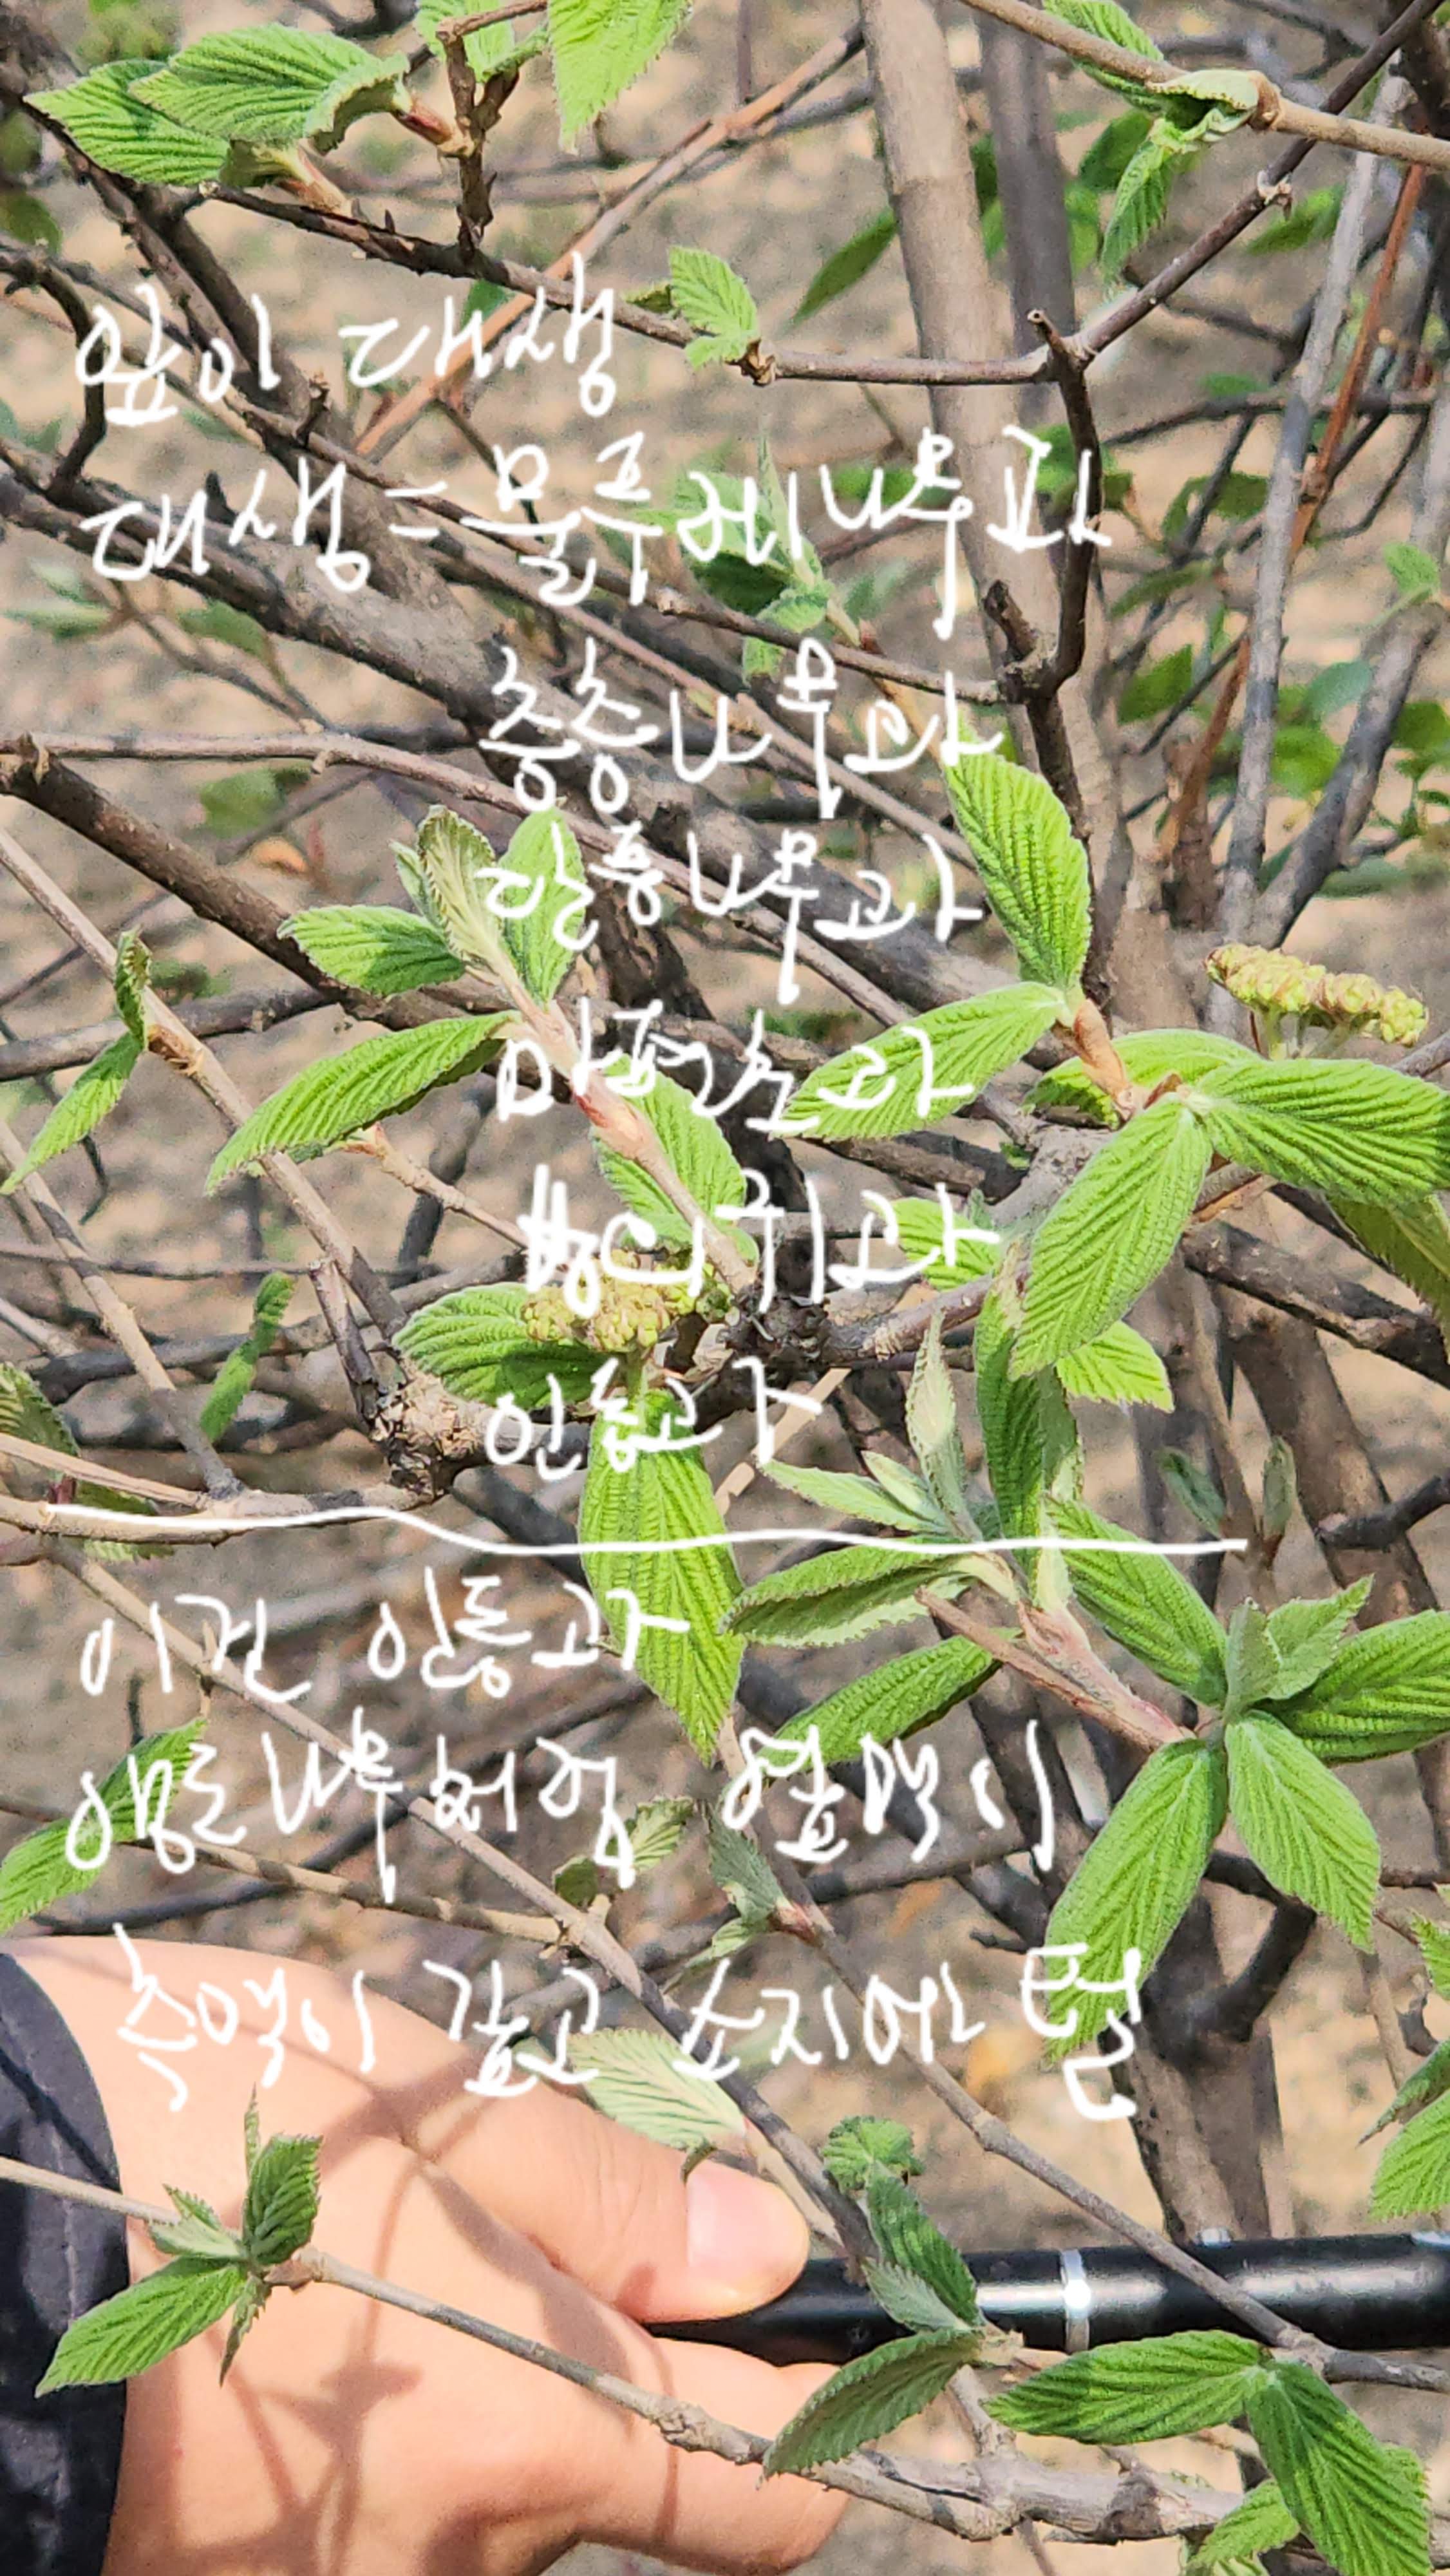 잎이 대생
대생 = 물푸레나무과
층층나무과
단풍나무과
마편초과
범의귀과
인동과
이건 인동과
앵도나무처럼 엽맥이
측맥이 깊고 소지에 털